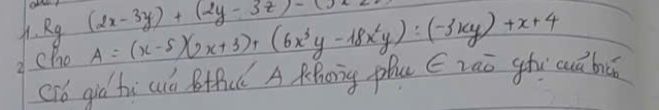 1. Rg (2x-3y) + (2y-3z) - (3x 2
2 Cho A = (x-5)(2x+3) + (6x³y - 18x²y) : (-3xy) + x + 4
Có giá trị của bthức A không phụ ∈ vào gtrị của biến